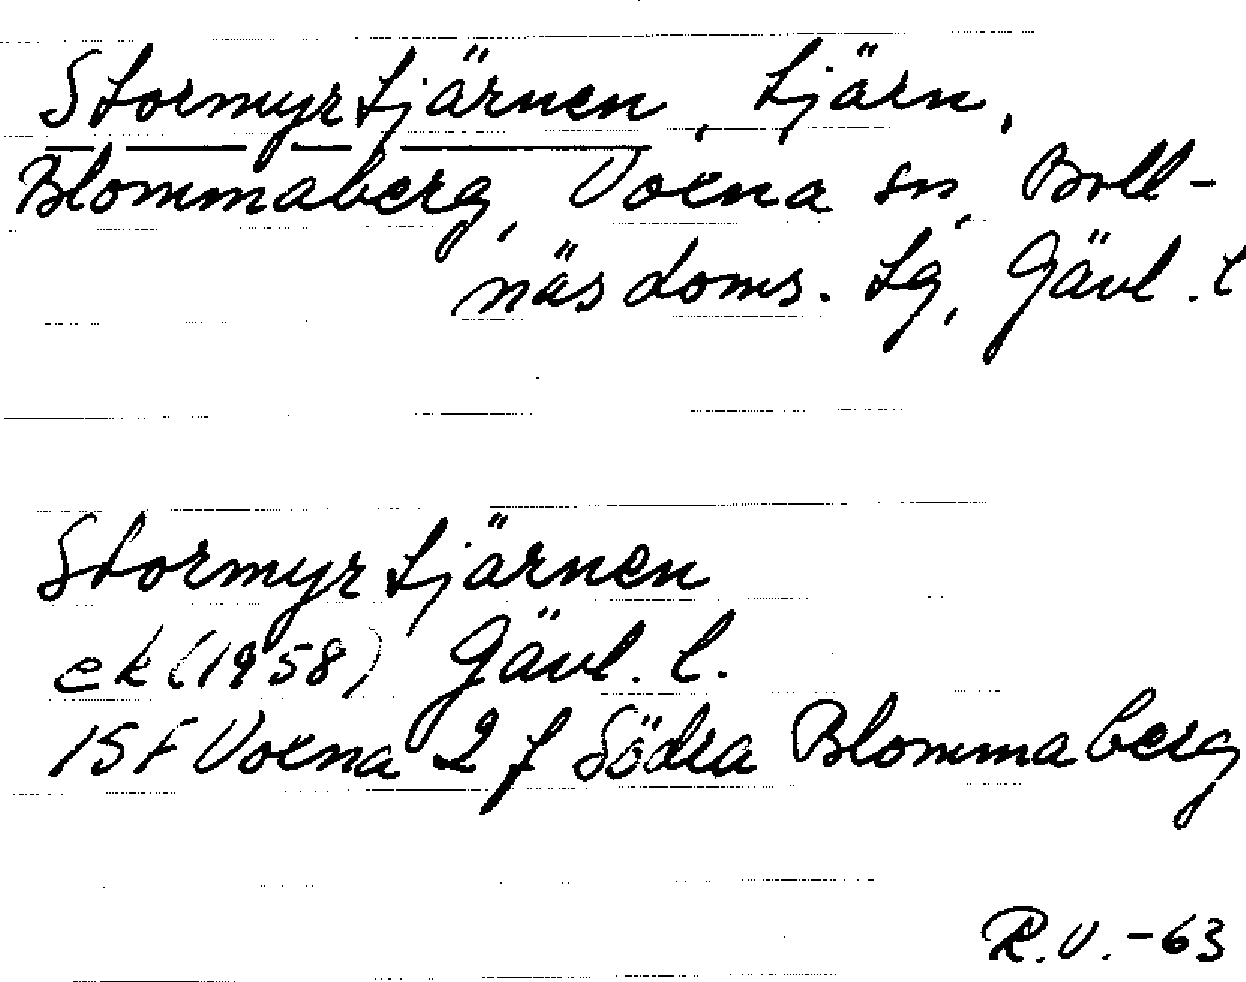 Stormyrtjärnen, tjärn,
Blommaberg, Voxna sn, Boll-
näs doms. tg, Gävl. l
Stormyrtjärnen
ek (1958) Gävl. l.
15F Voxna 2 f Södra Blommaberg
R.V.-63